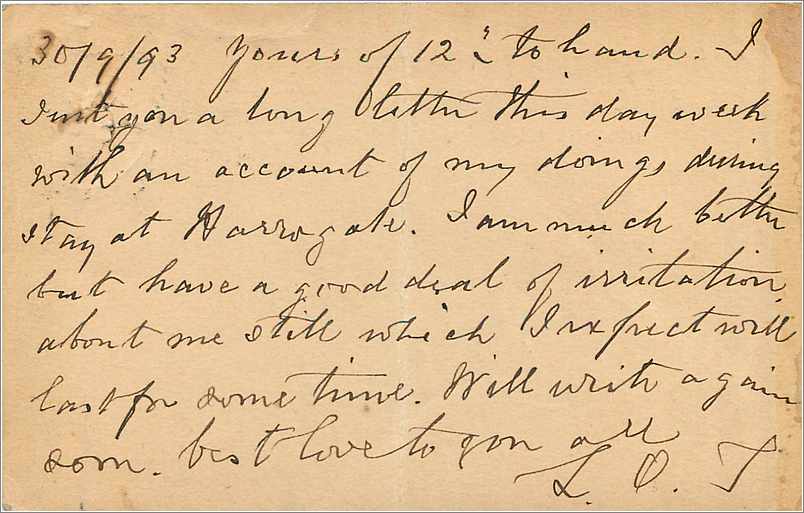 30/9/93 Yours of 12th to hand. I
sent you a long letter this day week
with an account of my doings during
stay at Harrogate. I am much better
but have a good deal of irritation
about me still which I expect will
last for some time. Will write again
soon. best love to you all
L. O. T